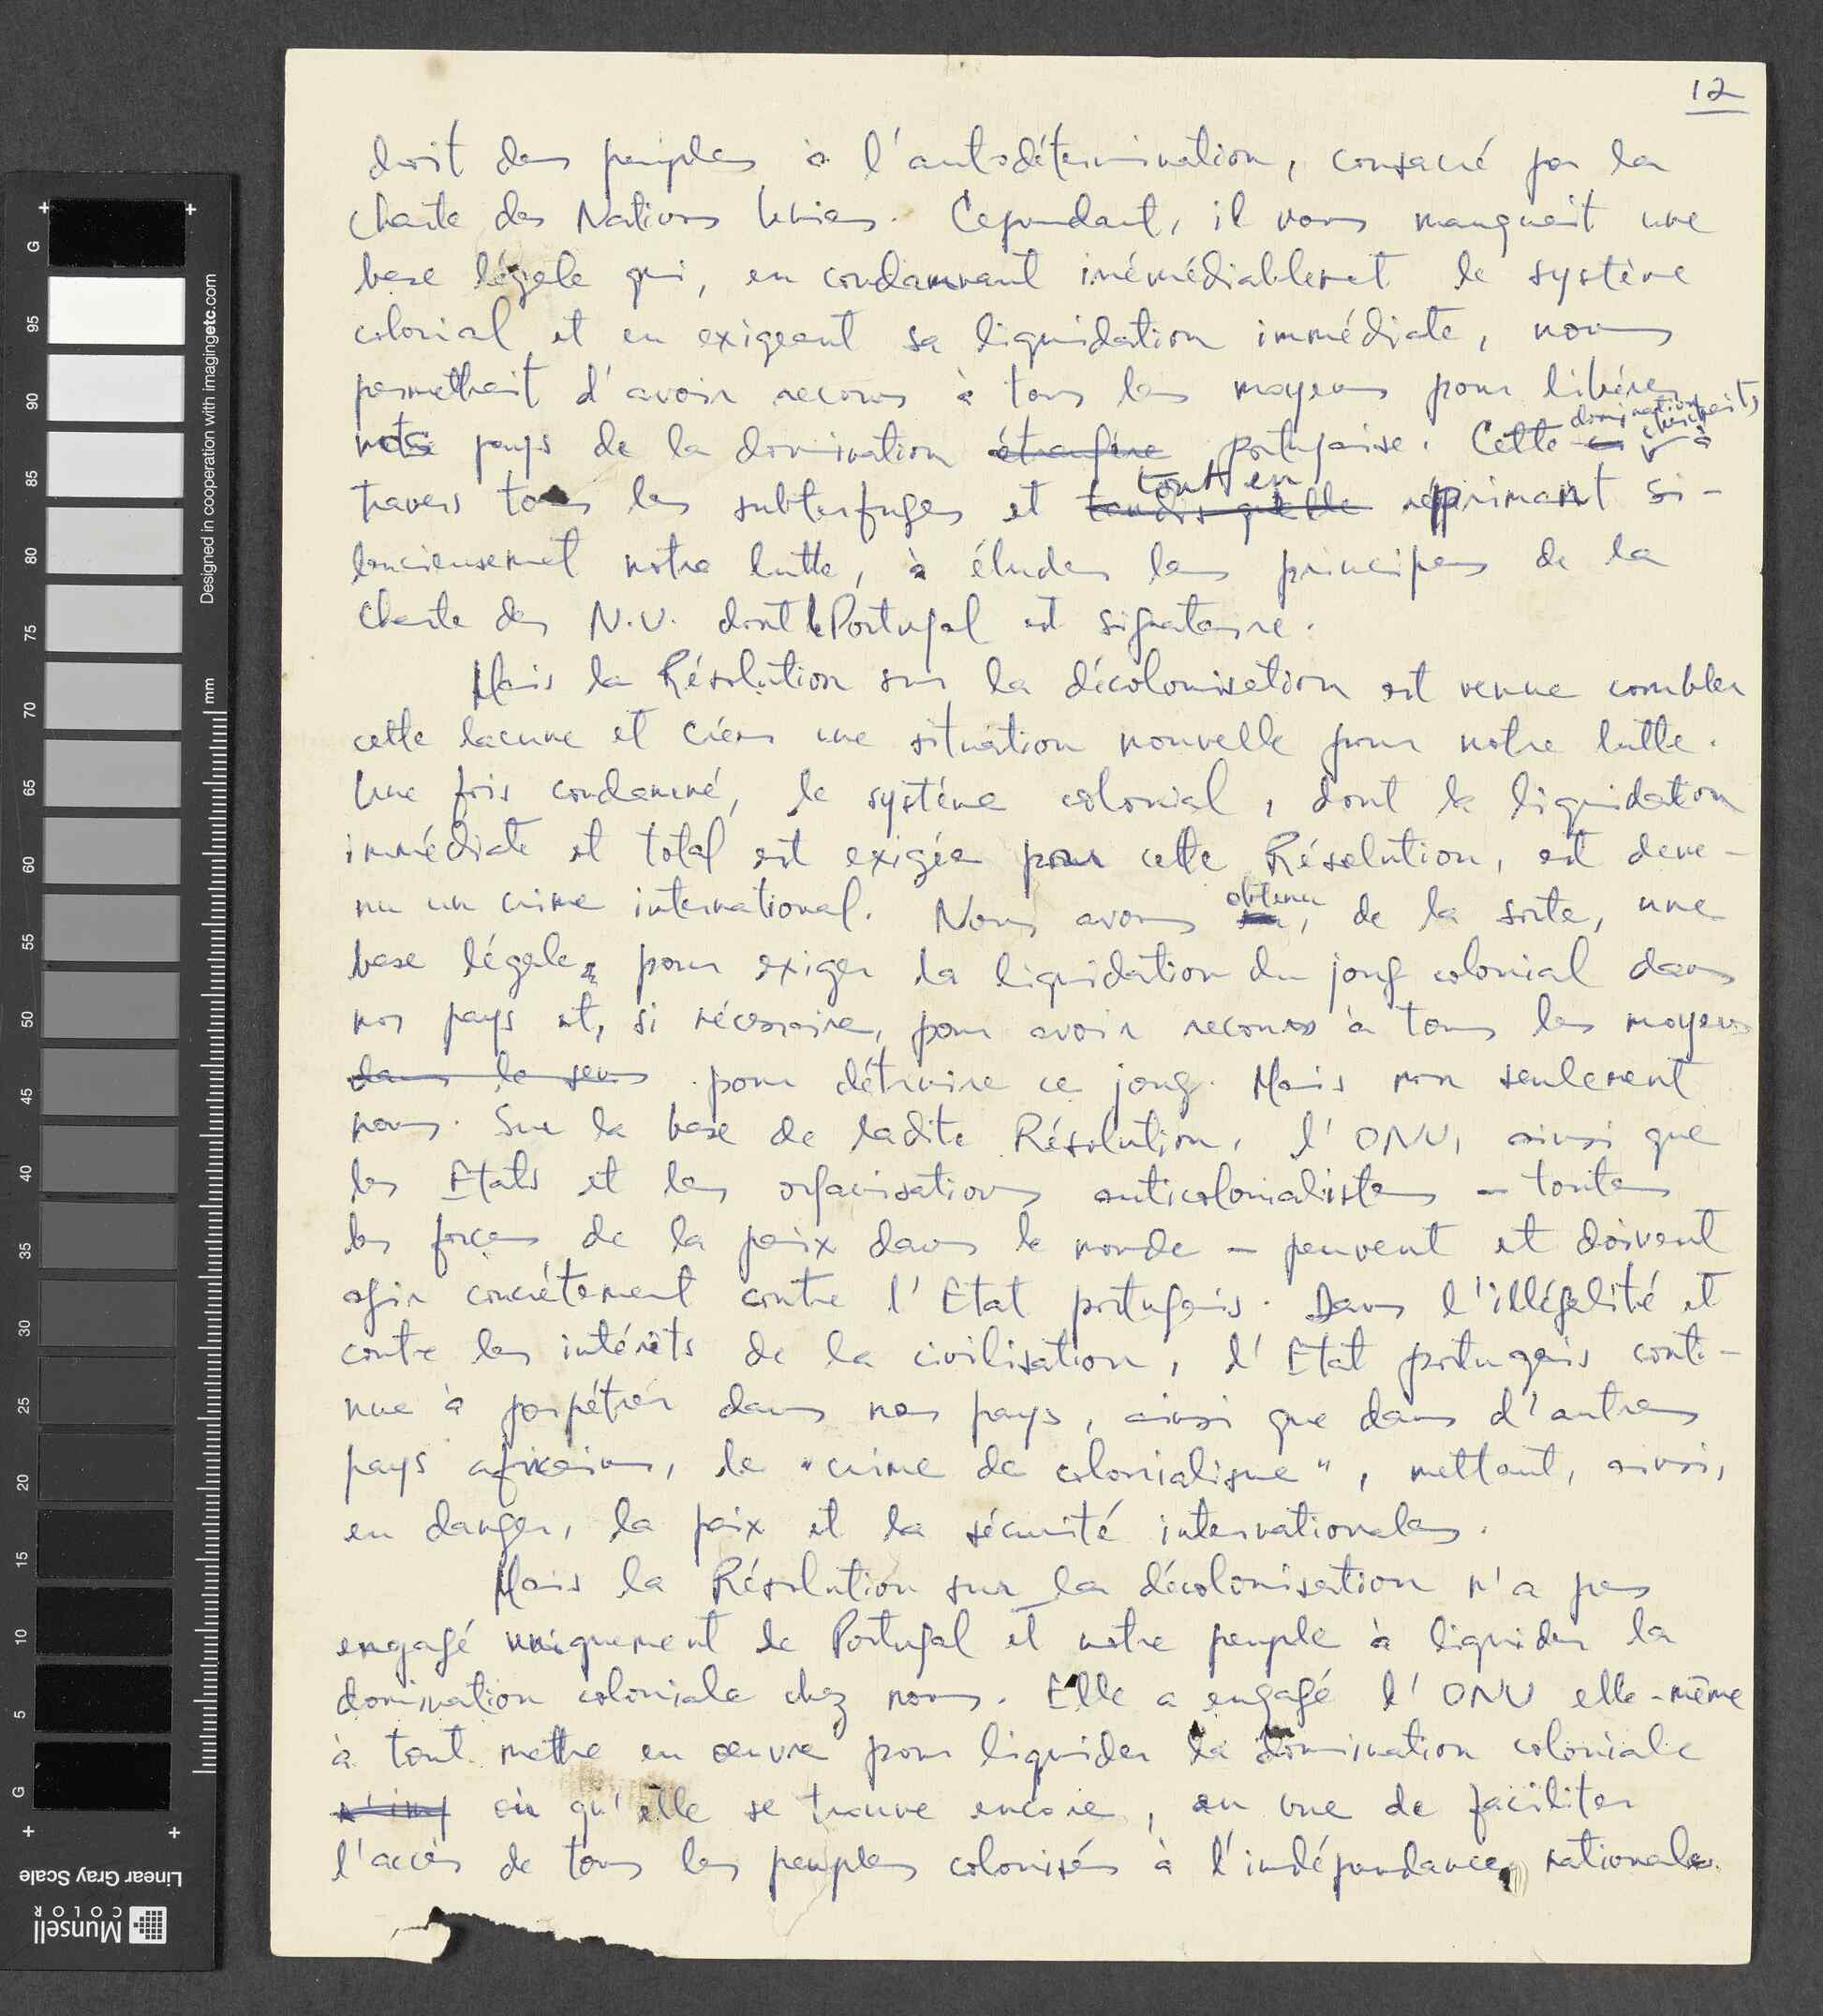 12
droit des peuples à l'autodétermination, consacré par la
Charte des Nations Unies. Cependant, il nous manquait une
base légale qui, en condamnant irrémédiablement le système
colonial et en exigeant sa liquidation immédiate, nous
permettrait d'avoir recours à tous les moyens pour libérer
notre pays de la domination étrangère portugaise. Cette domination cherchait, à
travers tous les subterfuges et tandis qu'elle tout en réprimant si-
lencieusement notre lutte, à éluder les principes de la
Charte des N.U. dont le Portugal est signataire.
Mais la Résolution sur la décolonisation est venue combler
cette lacune et créer une situation nouvelle pour notre lutte.
Une fois condamné, le système colonial, dont la liquidation
immédiate et total est exigée par cette Résolution, est deve-
nu un crime international. Nous avons obtenu, de la sorte, une
base légale, pour exiger la liquidation du joug colonial dans
nos pays et, si nécessaire, pour avoir recours à tous les moyens
dans le sens pour détruire ce joug. Mais non seulement
nous. Sur la base de ladite Résolution, l'ONU, ainsi que
les Etats et les organisations anticolonialistes - toutes
les forces de la paix dans le monde - peuvent et doivent
agir concrètement contre l'Etat portugais. Dans l'illégalité et
contre les intérêts de la civilisation, l'Etat portugais conti-
nue à perpétrer dans nos pays, ainsi que dans d'autres
pays africains, le "crime de colonialisme", mettant, ainsi,
en danger, la paix et la sécurité internationales.
Mais la Résolution sur la décolonisation n'a pas
engagé uniquement le Portugal et notre peuple à liquider la
domination coloniale chez nous. Elle a engagé l'ONU elle-même
à tout mettre en œuvre pour liquider la domination coloniale
où qu'elle se trouve encore, en vue de faciliter
l'accès de tous les peuples colonisés à l'indépendance nationale.
Designed in cooperation with imagingetc.com
mm
G
95
90
85
80
75
70
65
60
55
50
45
40
35
30
25
20
15
10
5
G
Linear Gray Scale
Munsell
COLOR